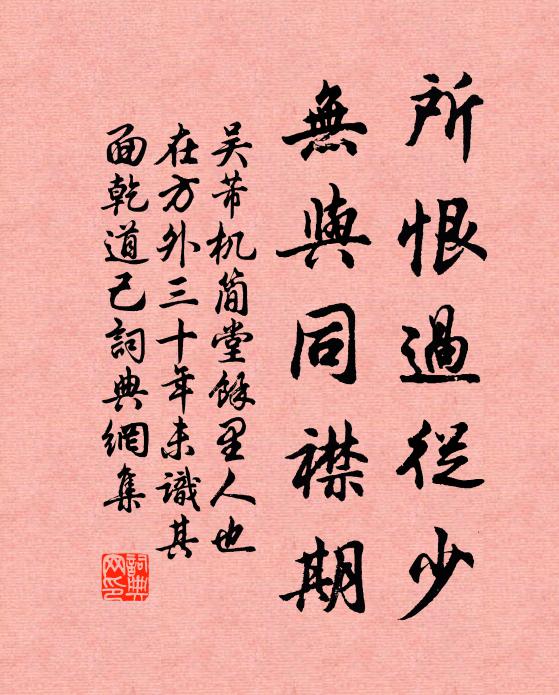 所恨過從少
無與同襟期
吴芾机简堂餘里人也
在方外三十年未識其
面乾道己詞典網集
詞典
网印